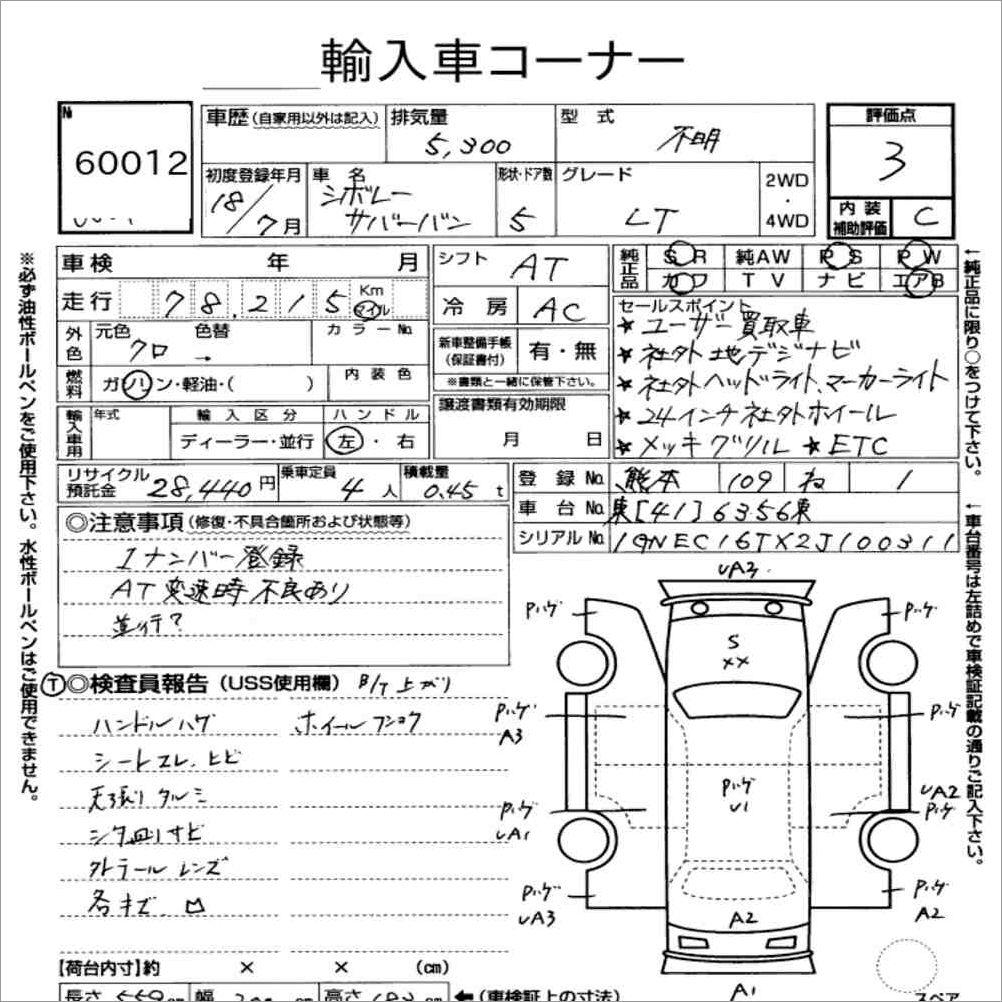 輸入車コーナー
№
60012
車歴 (自家用以外は記入)
排気量
5,300
型 式
不明
評価点
3
初度登録年月
18/7月
車 名
シボレー
サバーバン
形状・ドア数
5
グレード
LT
2WD
・
4WD
内 装
補助評価
C
車検 年 月
走行 78,215 Km
マイル
シフト
AT
冷 房
AC
純正品
SR 純AW PS PW
カワ TV ナビ エアB
外色
元色
クロ
色替
→
カラーNo.
燃料
ガソリン・軽油・( )
内 装 色
新車整備手帳
(保証書付)
有・無
※書類と一緒に保管下さい。
セールスポイント
★ユーザー買取車
★社外地デジナビ
★社外ヘッドライト、マーカーライト
★24インチ社外ホイール
★メッキグリル ★ETC
輸入車用
年式
輸 入 区 分
ディーラー・並行
ハ ン ド ル
左・右
譲渡書類有効期限
月 日
リサイクル
預託金
28,440円
乗車定員
4人
積載量
0.45t
登 録 No.
熊本 109 ね 1
車 台 No.
東[41]6356東
シリアル No.
1GNEC16TX2J100311
◎注意事項 (修復・不具合箇所および状態等)
1ナンバー登録
AT変速時不良あり
並行?
Ⓣ◎検査員報告 (USS使用欄) B/T上がり
ハンドルハゲ ホイールフショク
シートスレ、ヒビ
天張りタルミ
シタ回りサビ
外テールレンズ
各キズ、凹
UA3
Pハゲ
Pハゲ
S
××
Pハゲ
A3
Pハゲ
Pハゲ
U1
UA2
Pハゲ
Pハゲ
UA1
Pハゲ
UA3
Pハゲ
A2
A2
A1
スペア
【荷台内寸】約 × × (cm)
長さ 559cm 幅 高さ ←(車検証上の寸法)
※必ず油性ボールペンをご使用下さい。水性ボールペンはご使用できません。
←純正品に限り○をつけて下さい。
←車台番号は左詰めで車検証記載の通りご記入下さい。